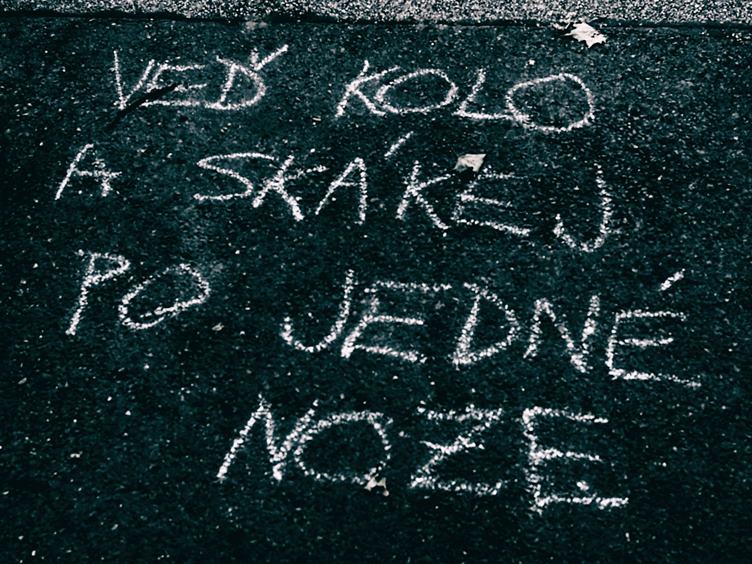 VEĎ KOLO
A SKÁKEJ
PO JEDNÉ
NOZE